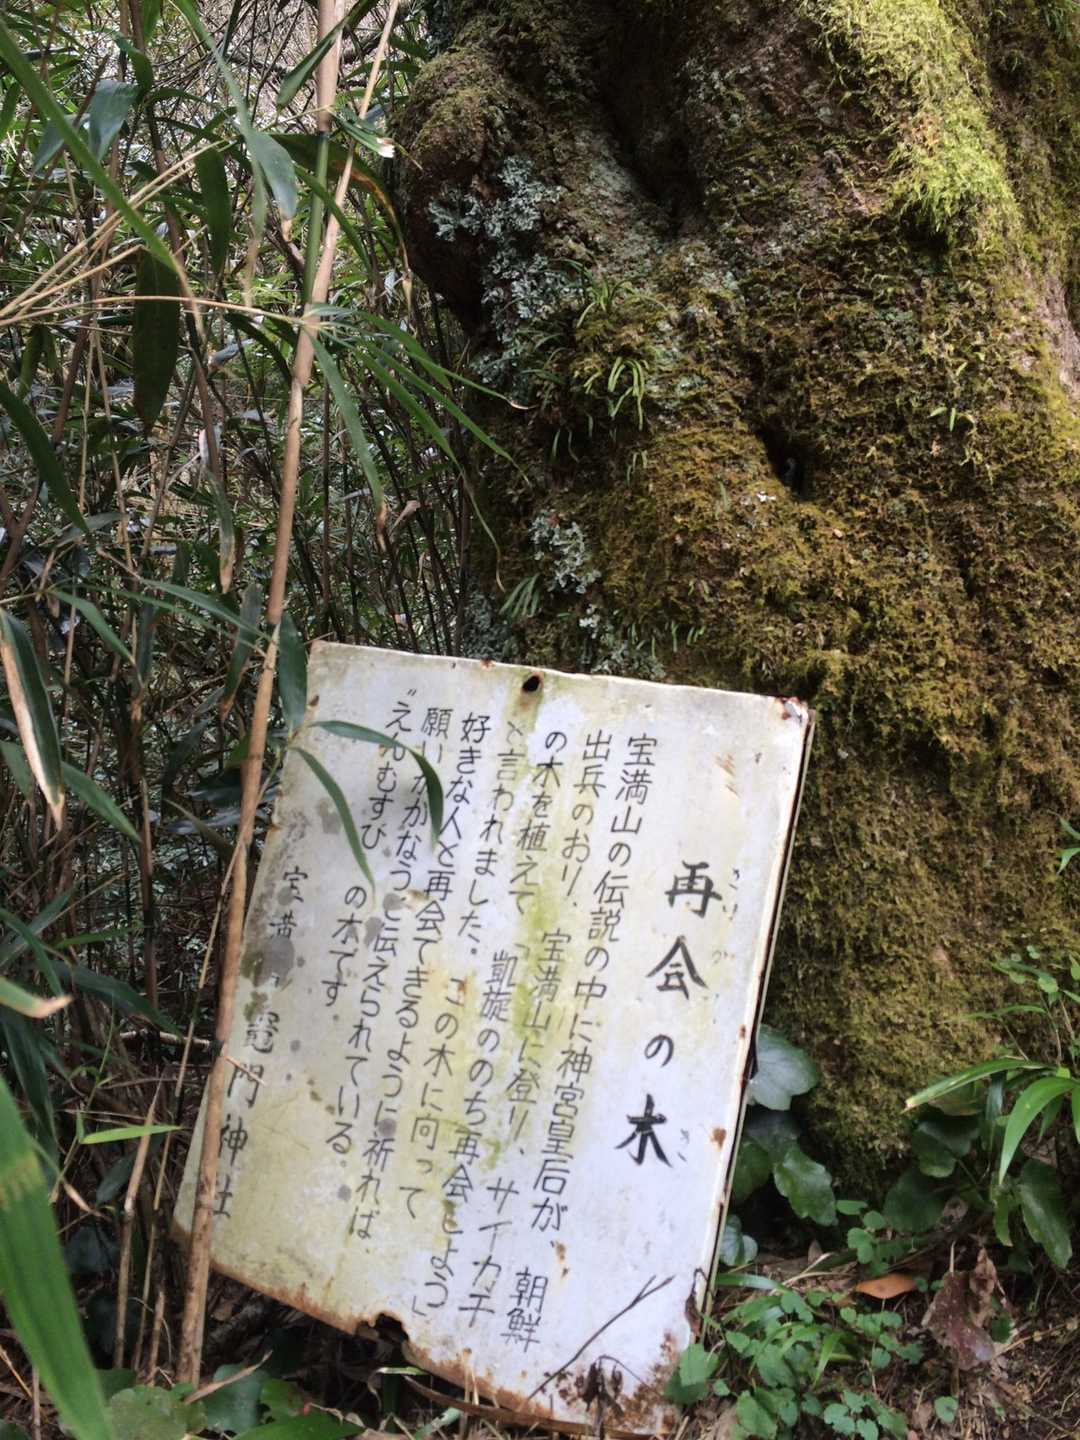 再会の木
き
宝満山の伝説の中に神宮皇后が、朝鮮
出兵のおり、宝満山に登り、サイカチ
の木を植えて「凱旋ののち再会しよう」
と言われました。この木に向って
好きな人と再会できるように祈れば、
願いがかなうと伝えられている。
〝えんむすび の木です。
宝満 竈門神社